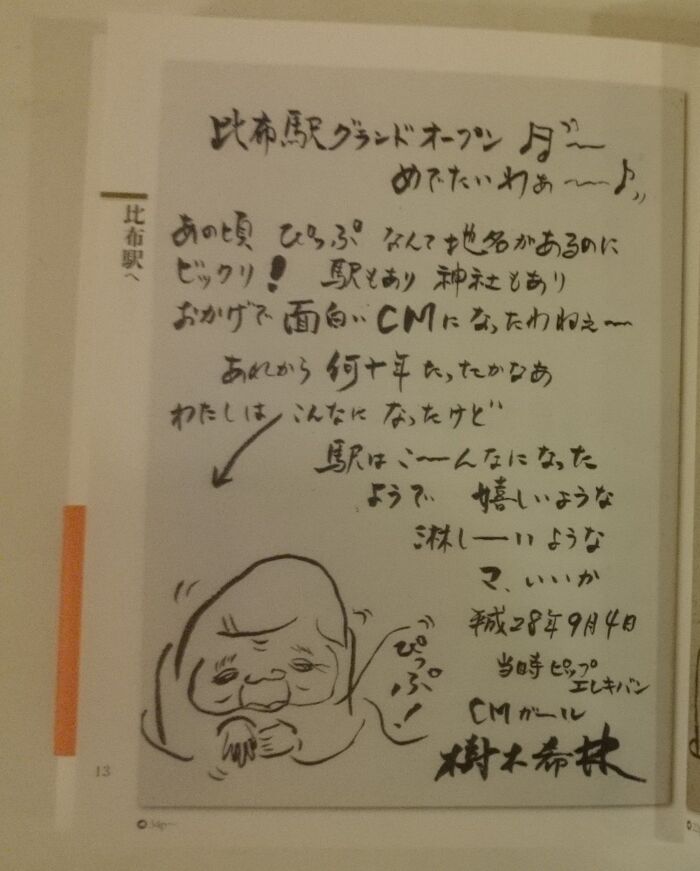 比布駅グランドオープン
めでたいわぁ〜〜
あの頃 ぴっぷ なんて地名があるのに
ビックリ! 駅もあり 神社もあり
おかげで 面白い CMになったわねぇ〜
あれから 何十年 たったかなあ
わたしは こんなに なったけど
駅は こーーんなになった
ようで 嬉しいような
淋しーーい ような
マ、いいか
平成28年9月4日
当時 ピップ
エレキバン
CMガール
樹木希林
ぴっぷ。!
比布駅へ
13